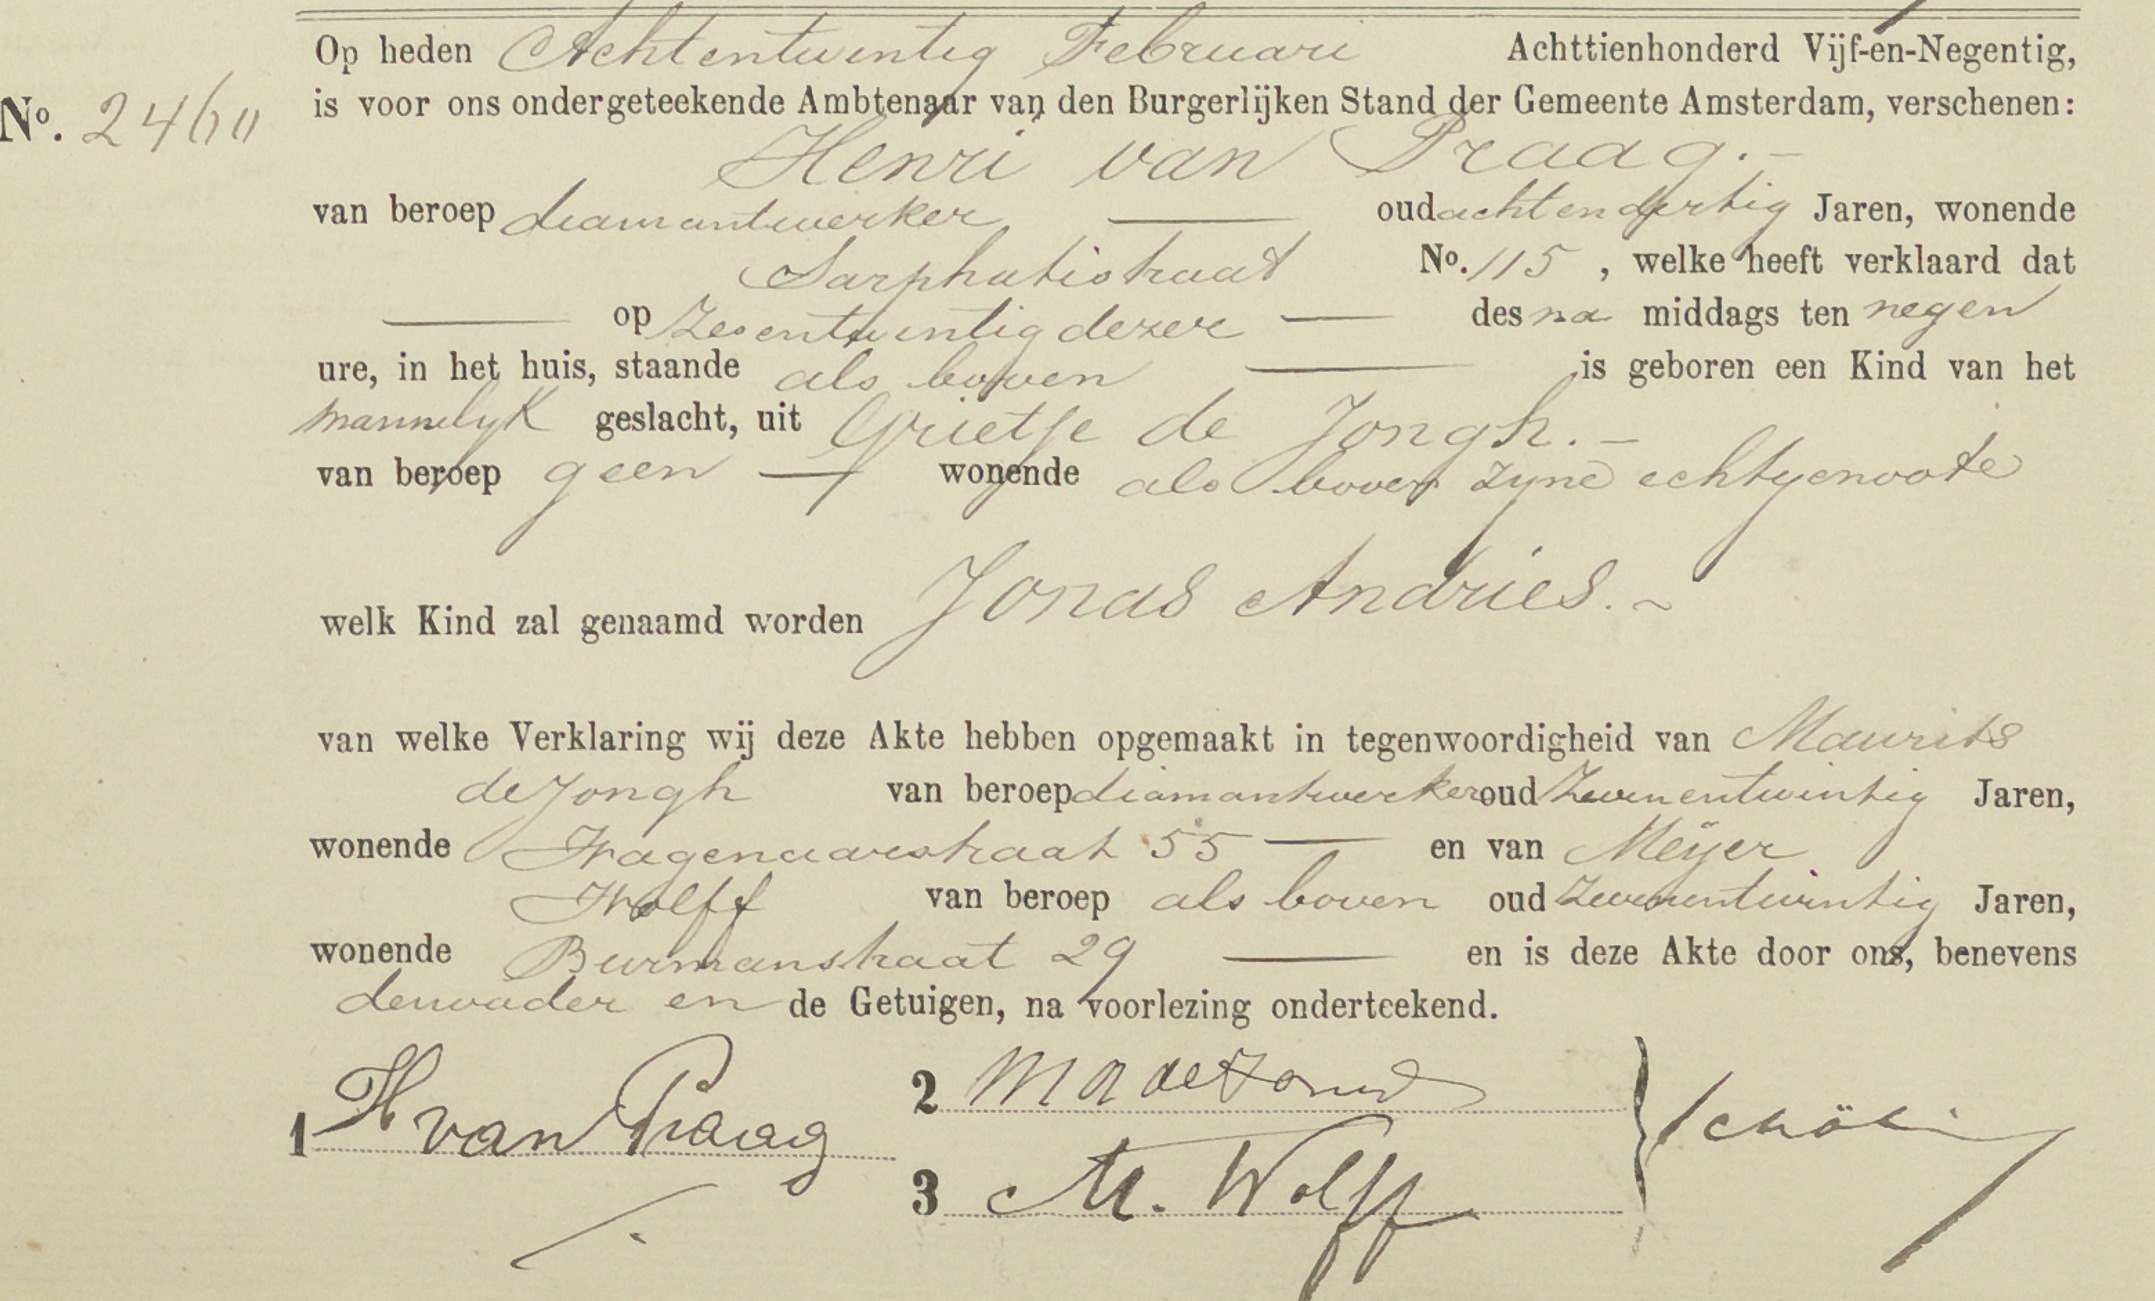 Op heden Achtentwintig Februari Achttienhonderd Vijf-en-Negentig,
No. 2460 is voor ons ondergeteekende Ambtenaar van den Burgerlijken Stand der Gemeente Amsterdam, verschenen:
Henri van Praag.-
van beroep diamantwerker — oud achtendertig Jaren, wonende
Sarphatistraat No. 115, welke heeft verklaard dat
— op Zesentwintig dezer — des na middags ten negen
ure, in het huis, staande als boven — is geboren een Kind van het
mannelyk geslacht, uit Grietje de Jongh.-
van beroep geen — wonende als boven zyne echtgenoote
welk Kind zal genaamd worden Jonas Andries.-
van welke Verklaring wij deze Akte hebben opgemaakt in tegenwoordigheid van Maurits
de Jongh van beroep diamantwerker oud Zevenentwintig Jaren,
wonende Wagenaarstraat 55 — en van Meijer
Wolff van beroep als boven oud Zevenentwintig Jaren,
wonende Burmanstraat 29 — en is deze Akte door ons, benevens
den vader en de Getuigen, na voorlezing onderteekend.
1 H van Praag
2 M de Jongh
3 M. Wolff